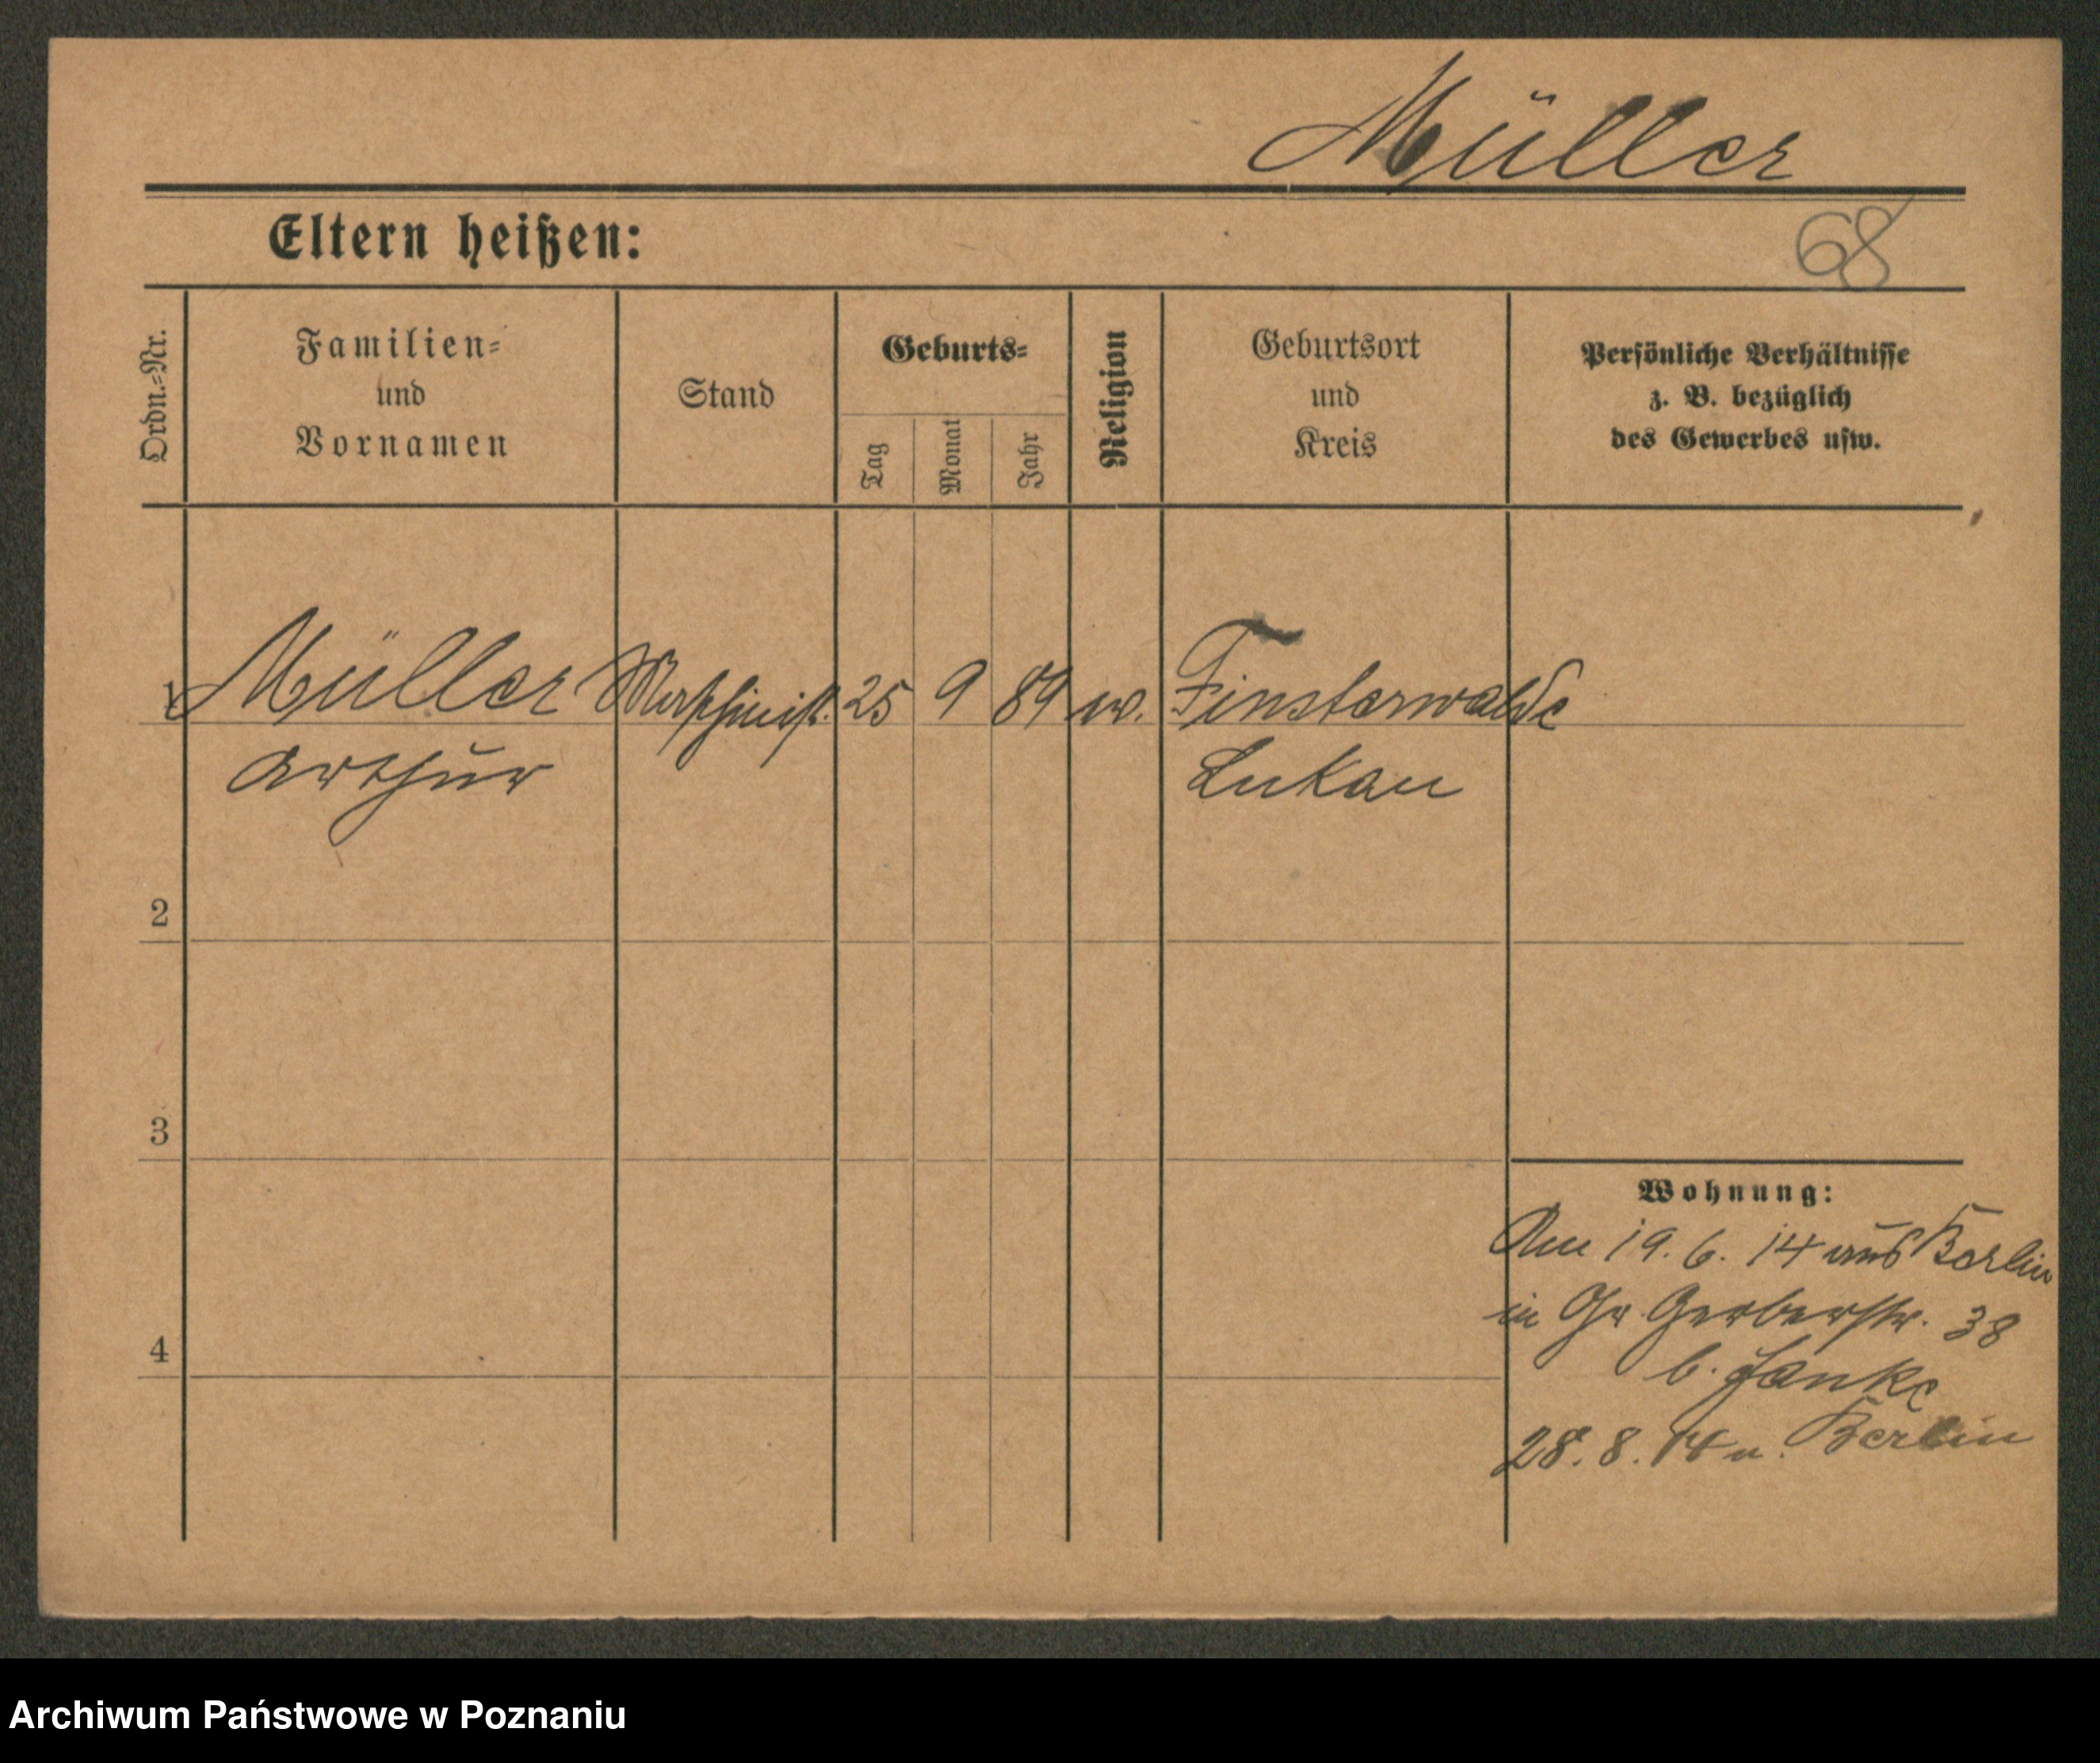 Müller
Eltern heißen:
68
Ordn.-Nr.
Familien-
und
Vornamen
Stand
Geburts-
Tag
Monat
Jahr
Religion
Geburtsort
und
Kreis
Persönliche Verhältnisse
z. B. bezüglich
des Gewerbes usw.
1 Müller Maschinist. 25 9 89 ev. Finsterwalde
Arthur Lukau
2
3
4
Wohnung:
Am 19. 6. 14 aus Berlin
in Gr. Gerberstr. 38
b. Janke
28. 8. 14 n. Berlin
Archiwum Państwowe w Poznaniu